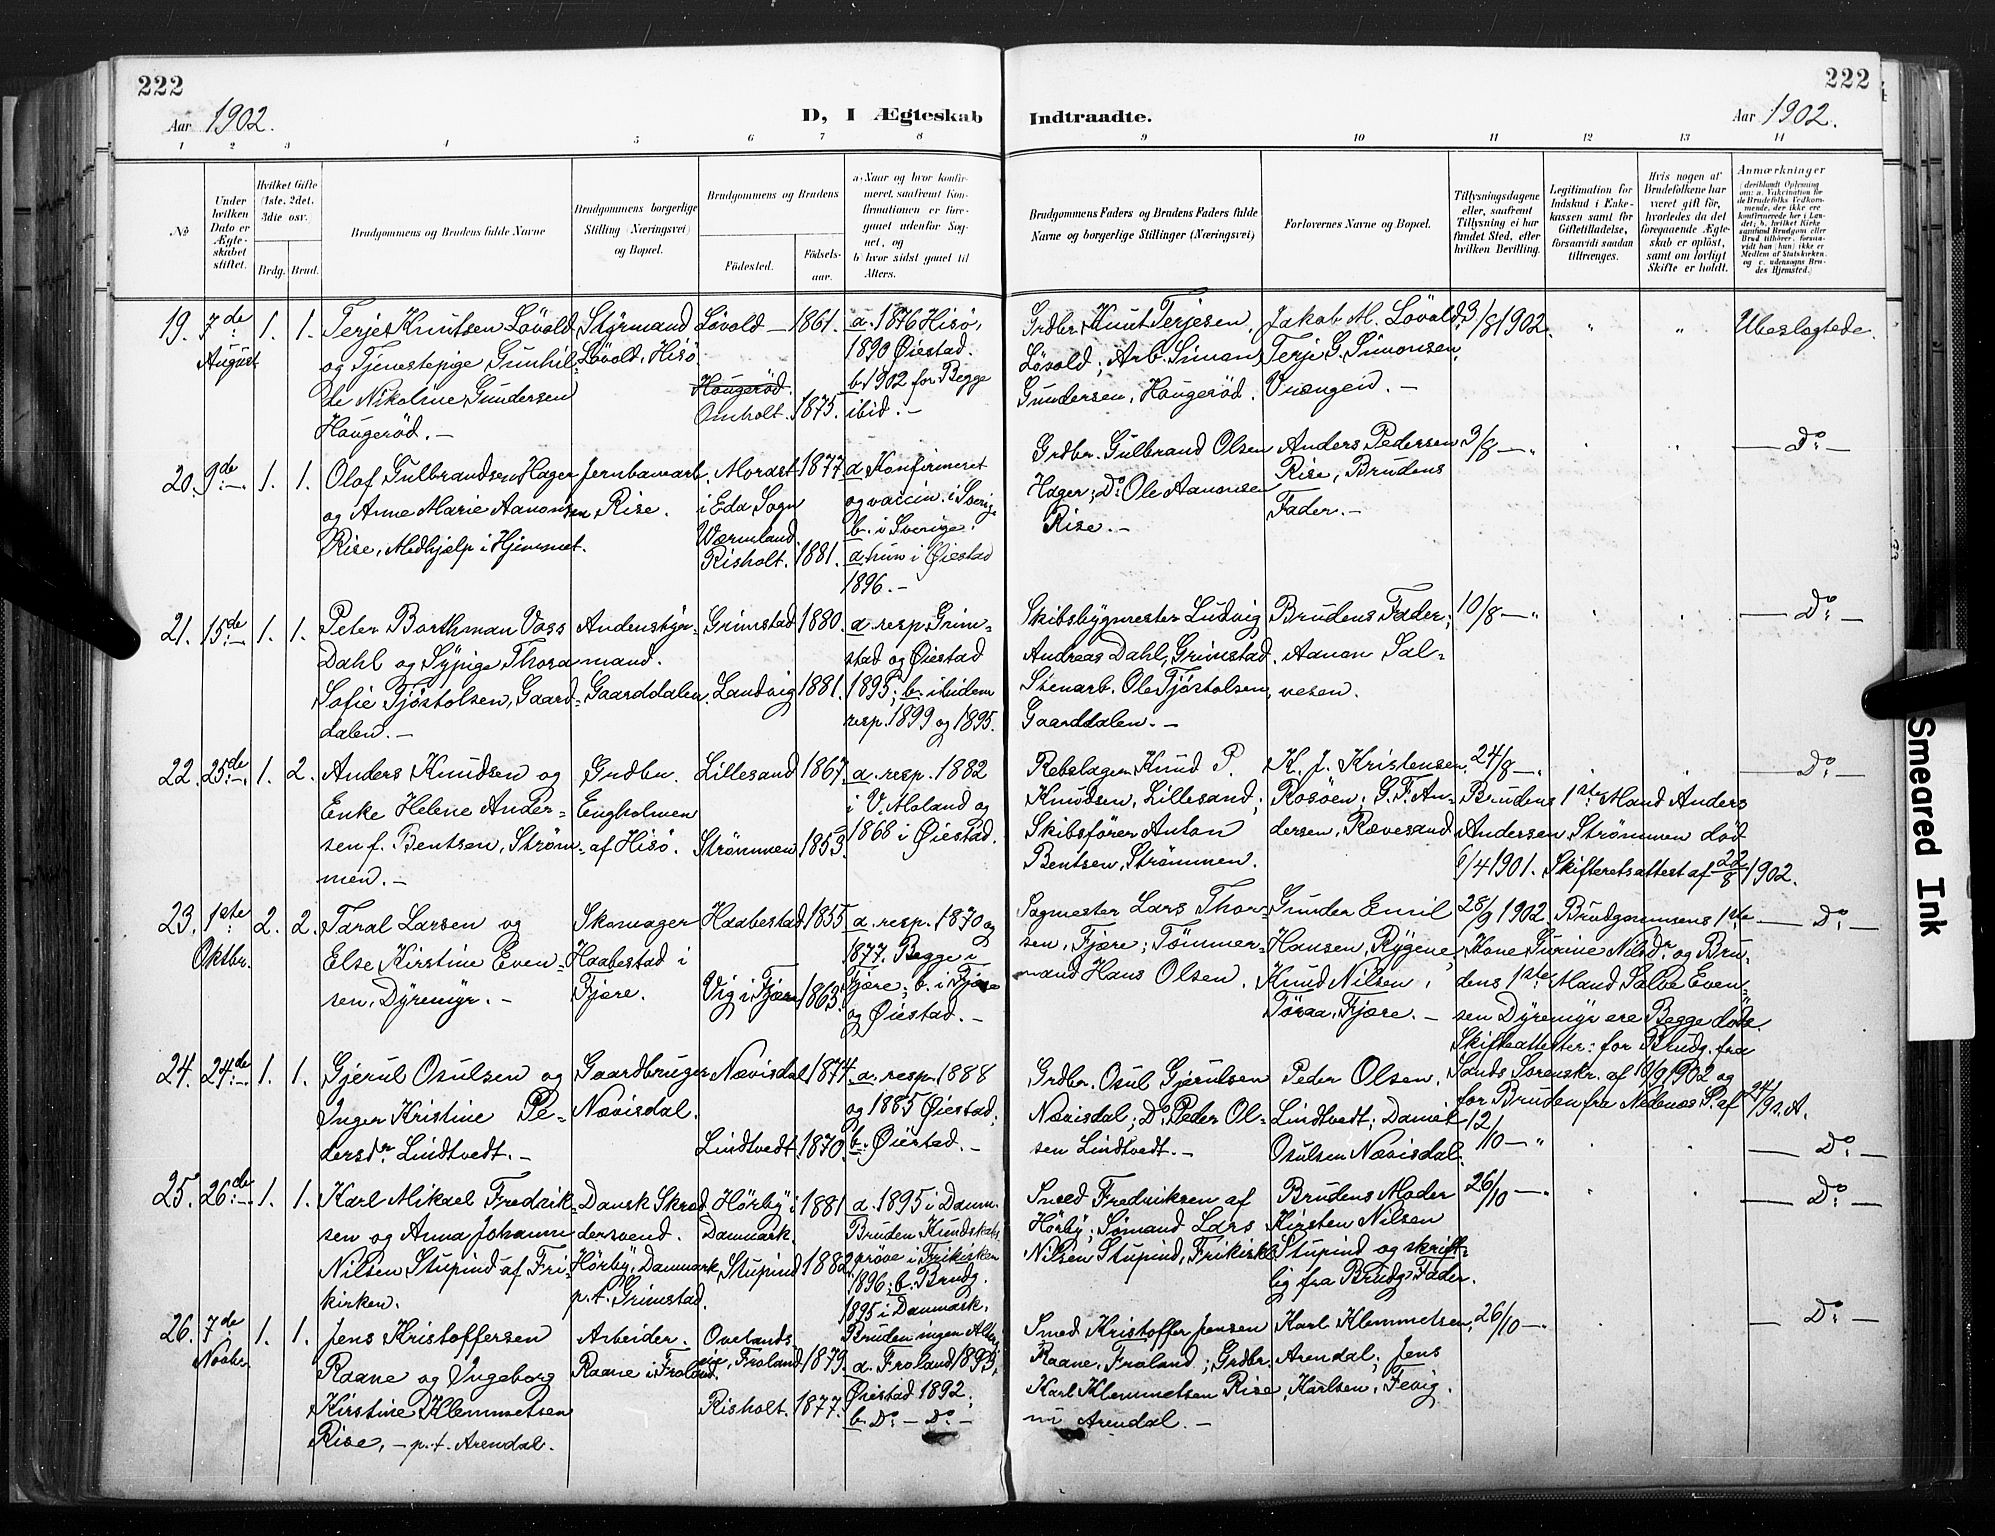 222
222
Aar 1902.
D, I Ægteskab Indtraadte.
Aar 1902.
1 2 3 4 5 6 7 8 9 10 11 12 13 14
No
Under hvilken Dato er Ægteskabet stiftet.
Hvilket Gifte (1ste, 2det, 3die osv.)
Brdg. Brud.
Brudgommens og Brudens fulde Navne
Brudgommens borgerlige Stilling (Næringsvei) og Bopæl.
Brudgommens og Brudens
Fødested.
Fødselsaar.
a) Naar og hvor konfirmeret, saafremt Konfirmationen er foregaaet udenfor Sognet, og
b) hvor sidst gaaet til Alters.
Brudgommens Faders og Brudens Faders fulde Navne og borgerlige Stillinger (Næringsvei)
Forlovernes Navne og Bopæl.
Tillysningsdagene eller, saafremt Tillysning ei har fundet Sted, efter hvilken Bevilling.
Legitimation for Indskud i Enkekassen samt for Giftetilladelse, forsaavidt saadan tiltrænges.
Hvis nogen af Brudefolkene har været gift før, hvorledes da det foregaaende Ægteskab er opløst, samt om lovligt Skifte er holdt.
Anmærkninger
(deriblandt Oplysning om: a. Vakcination for de Brudefolks Vedkommende, der ikke ere konfirmerede her i Landet; b. hvilket Kirkesamfund Brudgom eller Brud tilhører, forsaavidt han (hun) ikke er Medlem af Statskirken, og c. udensogns Brudes Hjemsted.)
19. 7de August 1. 1.
Terje Knutsen Løvold
og Tjenestepige Gunhil-
de Nikoline Gundersen
Hougerød. —
Styrmand
Løvold, Hisø
Løvold — 1861.
Hougerød
Omholt. 1875.
a. 1876 Hisø,
1890 Øiestad.
b. 1902 for Begge
ibid. —
Grdbr. Knut Terjesen,
Løvold; Arb. Simon
Gundersen, Hougerød.
Jakob M. Løvold,
Terje G. Simonsen,
Vrængen. —
3/8 1902. " " Ubeslægtede.
20. 9de — 1. 1.
Olaf Gulbrandsen Hager
og Anne Marie Aanonsen
Rise, Medhjælp i Hjemmet.
Jernbanearb.
Rise.
Morast 1877
i Eda Sogn
Wærmland.
Risholt. 1881.
a. Konfirmeret
og vaccin. i Sverig.
b. i Sverige.
a. hun i Øiestad
1896. —
Grdbr. Gulbrand Olsen
Hager; Do Ole Aanonsen
Rise. —
Anders Pedersen
Rise, Brudens
Fader. —
3/8 — " — Do —
21. 15de — 1. 1.
Peter Barthman Voss
Dahl og Sypige Thora
Sofie Tjøstolsen, Gaard-
dalen. —
Andenstyr-
mand.
Gaarddalen.
Grimstad 1880.
Landvig 1881.
a. resp. Grim-
stad og Øiestad
1895; b. ibidem
resp. 1899 og 1895.
Skibsbygmester Ludvig
Andreas Dahl, Grimstad.
Stenarb. Ole Tjøstolsen,
Gaarddalen. —
Brudens Fader;
Aanon Sal-
vesen.
10/8 — " — Do —
22. 25de — 1. 2.
Anders Knudsen og
Enke Helene Ander-
sen f. Bentsen, Strøm-
men. —
Grdbr.
Engholmen
af Hisø.
Lillesand 1867.
Strømmen 1853.
a. resp. 1882
i V. Moland og
1868 i Øiestad.
Rebslager Knud P.
Knudsen, Lillesand;
Skibsfører Anton
Bentsen, Strømmen.
K. J. Kristensen,
Rosøen; G. F. An-
dersen, Rævesand
24/8 — " — Do —
Brudens 1ste Mand Anders
Andersen Strømmen død
6/4 1901. Skifteretsattest af 22/8 1902.
23. 1ste Oktbr. 2. 2.
Taral Larsen og
Else Kirstine Even-
sen, Dyremyr. —
Skomager
Haabestad i
Fjære.
Haabestad 1855
Vig i Fjære 1863.
a. resp. 1870 og
1877. Begge i
Fjære; b. i Fjære
og Øiestad. —
Sagmester Lars Thor-
sen, Fjære; Tømmer-
mand Hans Olsen,
Gunder Emil
Hansen, Rygene,
Knud Nilsen,
Tøraa, Fjære. —
28/9 1902. Brudgommens 1ste — Do —
Kone Gurine Nilsdr. og Bru-
dens 1ste Mand Salve Even-
sen Dyremyr ere Begge døde.
Skifteattester: for Brudg. fra
Sands Sorenskr. af 10/9 1902 og
for Bruden fra Nedenæs S. af 24/9 s. A.
24. 24de — 1. 1.
Gjerul Osulsen og
Inger Kristine Pe-
dersdr Lindtvedt. —
Gaardbruger
Nævisdal.
Nævisdal 1874
Lindtvedt 1870.
a. resp. 1888
og 1885 Øiestad;
b. Øiestad. —
Grdbr. Osul Gjerulsen
Nævisdal; Do Peder Ol-
sen Lindtvedt. —
Peder Olsen,
Lindtvedt; Daniel
Osulsen Nævisdal.
12/10 — " — Do —
25. 26de — 1. 1.
Karl Mikael Fredrik-
sen og Anna Johanne
Nilsen Stupind af Fri-
kirken.
Dansk Skræd-
dersvend.
Hørby, Danmark
p. t. Grimstad.
Hørby i 1881
Danmark.
Stupind 1882
a. 1895 i Danm.
Bruden Kundskabs-
prøve i Frikirken
1896; b. Brudg.
1895 i Danmark,
Bruden ingen Alterg.
Smed Fredriksen af
Hørby; Sømand Lars
Nilsen Stupind, Frikirke
Brudens Moder
Kirsten Nilsen
Stupind og skrift-
lig fra Brudgs Fader.
26/10 — " — Do —
26. 7de Novbr. 1. 1.
Jens Kristoffersen
Raane og Ingeborg
Kirstine Klemmetsen
Rise, — p. t. Arendal.
Arbeider.
Raane i Froland.
Ovelands-
eie, Froland 1879.
Risholt. 1877.
a. Froland 1893,
Øiestad 1892;
b. Do — Do —
Smed Kristoffer Jensen
Raane, Froland; Grdbr.
Karl Klemmetsen Rise
Arendal. —
Karl Klemmetsen,
Arendal; Jens
Karlsen, Fevig.
26/10 — " — Do —
Smeared Ink